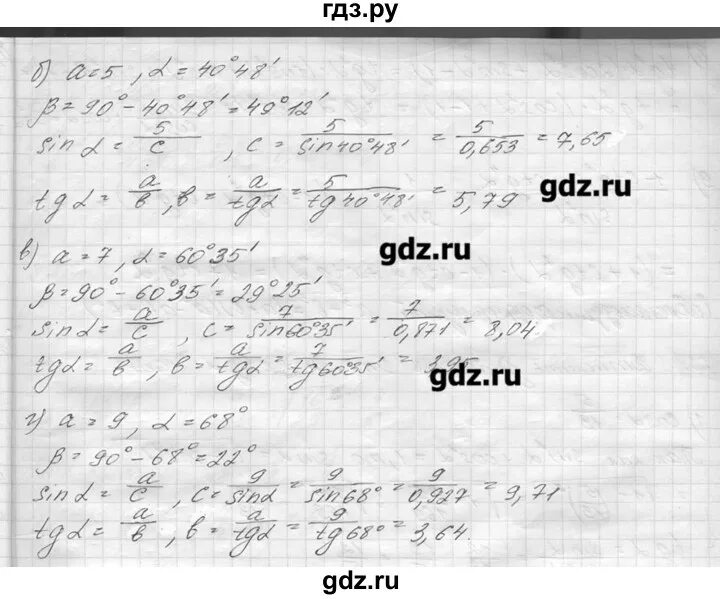 гдз.ру
б) a=5, α=40°48'
β=90°-40°48'=49°12'
sin α = 5/c, c = 5/sin40°48' = 5/0,653 = 7,65
tg α = a/в, в = a/tgα = 5/tg40°48' = 5,79
gdz.ru
в) a=7, α=60°35'
gdz.ru
β=90°-60°35'=29°25'
sin α = a/c, c = 7/sin60°35' = 7/0,871 = 8,04
tg α = a/в, в = a/tgα = 7/tg60°35' = 3,95
gdz.ru
г) a=9, α=68°
β=90°-68°=22°
sin α = a/c, c = 9/sinα = 9/sin68° = 9/0,927 = 9,71
tg α = a/в, в = a/tgα = 9/tg68° = 3,64.
gdz.ru